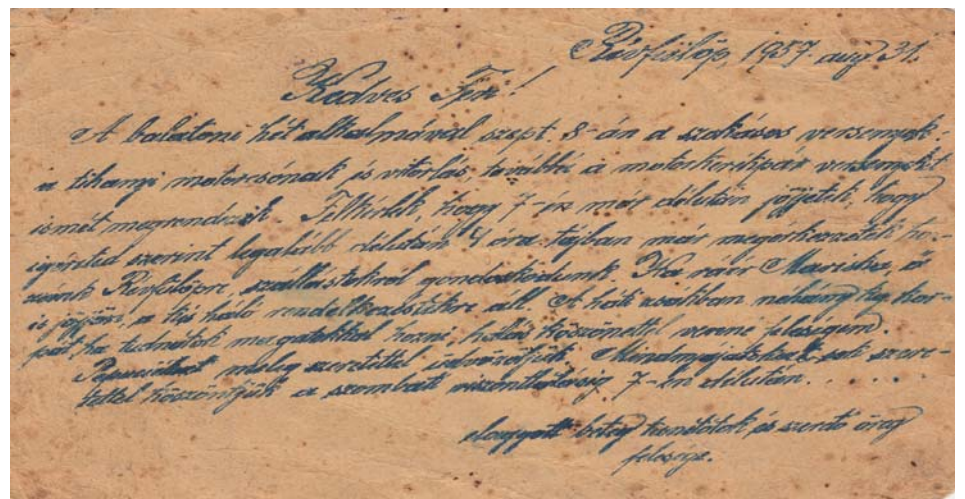 Révfülöp, 1957. aug 31.
Kedves
A balatoni hét alkalmával szept. 8-án a szokásos versenyek-
a tihanyi motorcsónak és vitorlás, továbbá a motorkerékpár versenyeket
ismét megrendezik. Felkérlek, hogy 7-én már délután jöjjetek, hogy
igéreted szerint legalább délután 4 óra tájban már megérkezzetek hoz-
zánk Révfülöpre, szállástokról gondoskodunk. Ha ráér Mariska, ő
is jöjjön, a kis háló rendelkezéstekre áll. A háti zsákban néhány kg
ha tudnátok magatokkal hozni, hálás köszönettel venné feleségem.
meleg szeretettel üdvözöljük. Mindnyájatokat sok szere-
tettel köszöntjük a szombati viszontlátásig 7-én délután . . . . .
beteg és szerető öreg
felesége.